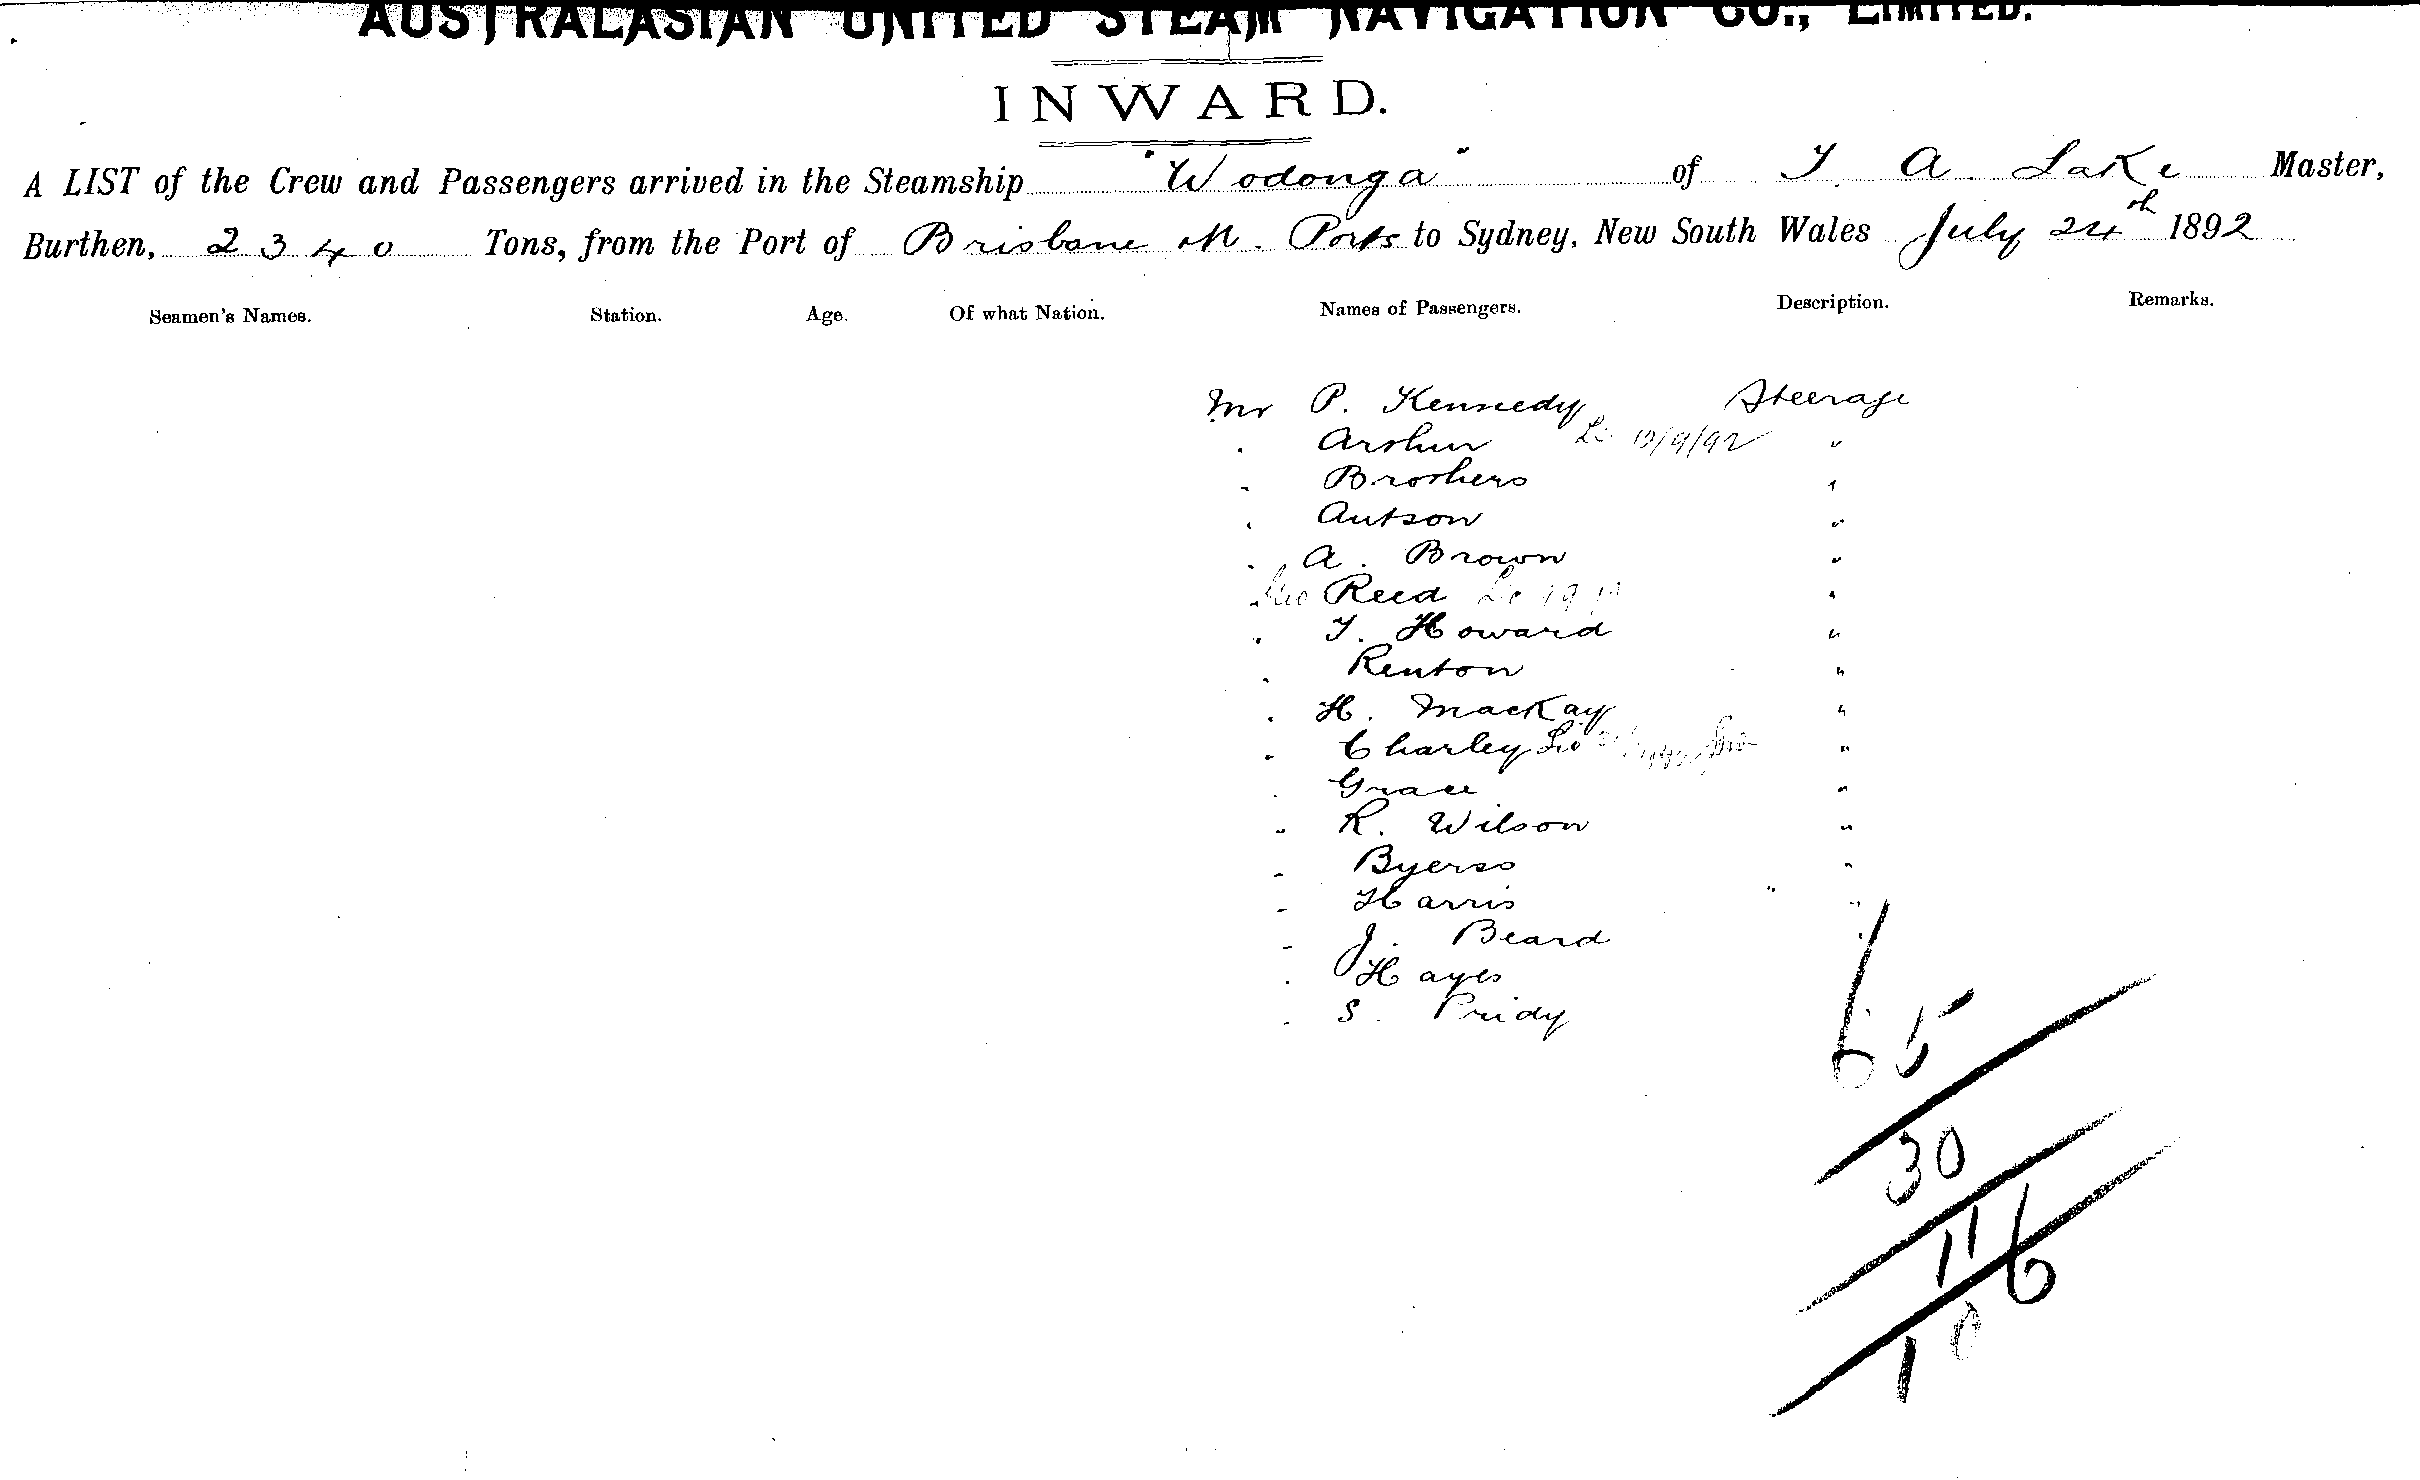 AUSTRALASIAN UNITED STEAM NAVIGATION CO., LIMITED.
INWARD.
A LIST of the Crew and Passengers arrived in the Steamship "Wodonga" of T. A. Lake Master,
Burthen, 2340 Tons, from the Port of Brisbane M. Ports to Sydney, New South Wales July 24th 1892
Seamen's Names. Station. Age. Of what Nation. Names of Passengers. Description. Remarks.
Mr P. Kennedy Steerage
. Arthur /9/92 "
- Brothers "
. Autson "
. A. Brown "
Reed "
. T. Howard "
. Renton "
. H. MacKay "
. Charley "
. Grace "
" R. Wilson "
- Byerso "
- Harris "
- J. Beard "
. Hayes
. S. Pridy
65
30
11
106